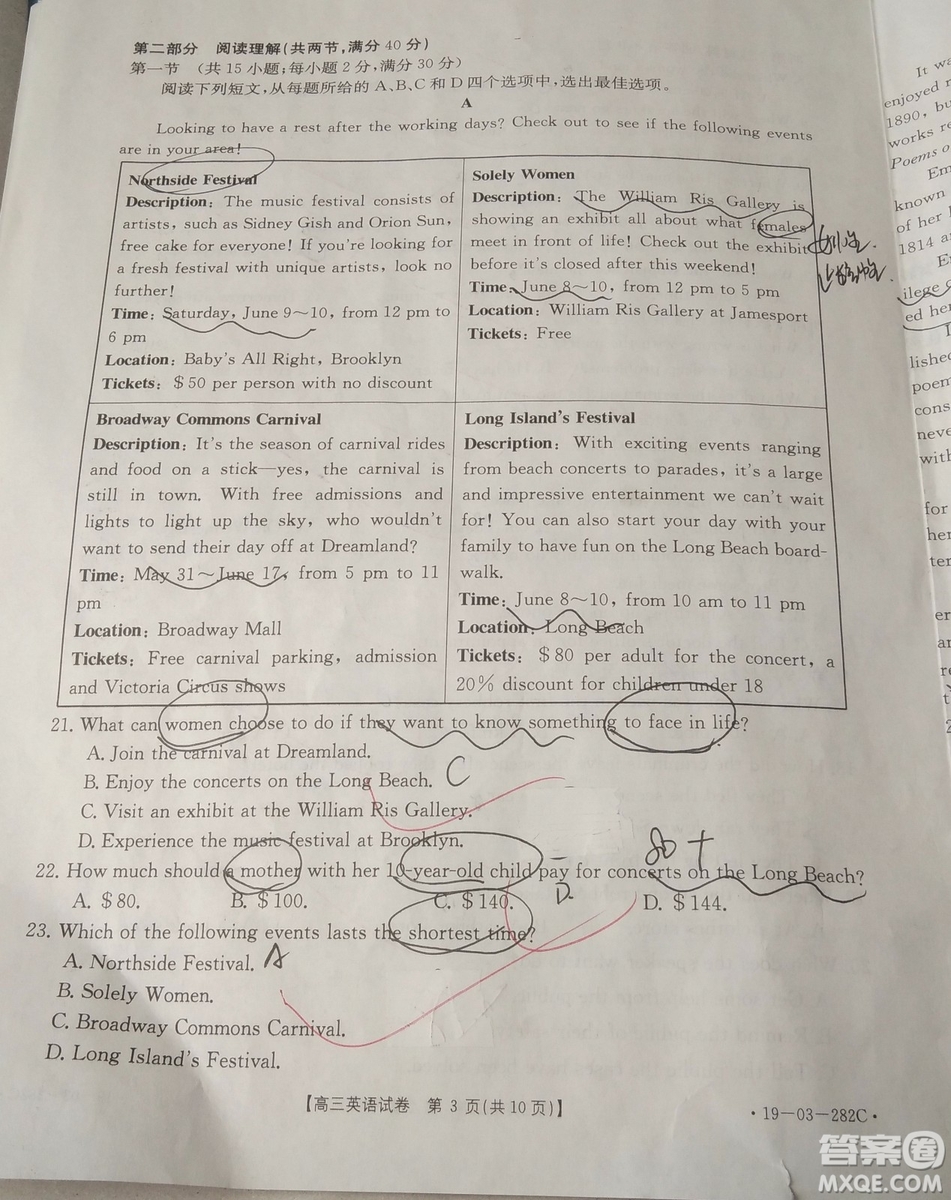 第二部分 阅读理解(共两节,满分 40 分)
第一节 (共 15 小题;每小题 2 分,满分 30 分)
阅读下列短文,从每题所给的 A、B、C 和 D 四个选项中,选出最佳选项。
A
Looking to have a rest after the working days? Check out to see if the following events
are in your area!
Northside Festival
Description: The music festival consists of
artists, such as Sidney Gish and Orion Sun,
free cake for everyone! If you're looking for
a fresh festival with unique artists, look no
further!
Time: Saturday, June 9～10, from 12 pm to
6 pm
Location: Baby's All Right, Brooklyn
Tickets: $50 per person with no discount
Solely Women
Description: The William Ris Gallery is
showing an exhibit all about what females
meet in front of life! Check out the exhibit
before it's closed after this weekend!
Time: June 8～10, from 12 pm to 5 pm
Location: William Ris Gallery at Jamesport
Tickets: Free
Broadway Commons Carnival
Description: It's the season of carnival rides
and food on a stick—yes, the carnival is
still in town. With free admissions and
lights to light up the sky, who wouldn't
want to send their day off at Dreamland?
Time: May 31～June 17, from 5 pm to 11
pm
Location: Broadway Mall
Tickets: Free carnival parking, admission
and Victoria Circus shows
Long Island's Festival
Description: With exciting events ranging
from beach concerts to parades, it's a large
and impressive entertainment we can't wait
for! You can also start your day with your
family to have fun on the Long Beach board-
walk.
Time: June 8～10, from 10 am to 11 pm
Location: Long Beach
Tickets: $80 per adult for the concert, a
20% discount for children under 18
21. What can women choose to do if they want to know something to face in life?
A. Join the carnival at Dreamland.
B. Enjoy the concerts on the Long Beach. C
C. Visit an exhibit at the William Ris Gallery.
D. Experience the music festival at Brooklyn.
80 +
22. How much should a mother with her 10-year-old child pay for concerts on the Long Beach?
A. $80. B. $100. C. $140. D. D. $144.
23. Which of the following events lasts the shortest time?
A. Northside Festival. A
B. Solely Women.
C. Broadway Commons Carnival.
D. Long Island's Festival.
【高三英语试卷 第 3 页(共 10 页)】
·19-03-282C·
It wa
enjoyed
1890, bu
works re
Poems o
Em
known
of her
1814 a
E
ilege
ed her
lished
poem
cons
neve
with
for
her
ter
er
答案圈
MXQE.COM